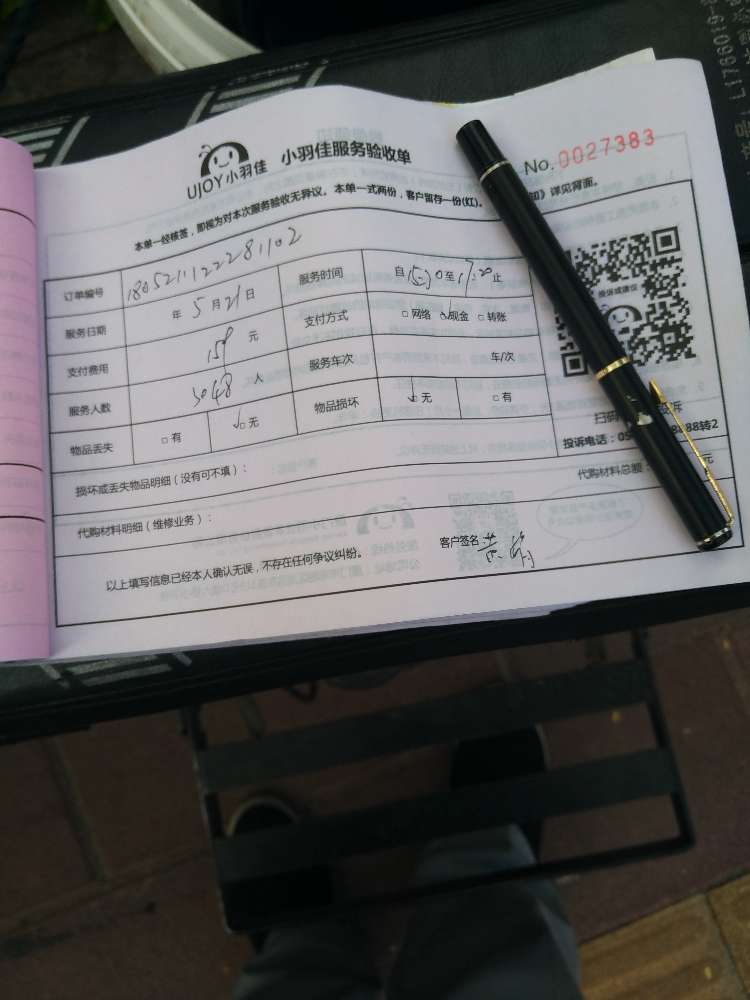 UJOY小羽佳 小羽佳服务验收单
No. 0027383
本单一经核签，即视为对本次服务验收无异议。本单一式两份，客户留存一份(红)。
知》详见背面。
订单编号 1805211122281102 服务时间 自15:30至17:30止
服务日期 年5月21日 支付方式 □网络 □现金 □转账
支付费用 元 服务车次 车/次
服务人数 3048 人 物品损坏 □无 □有
物品丢失 □有 □无
投诉或建议
扫码
诉
投诉电话：05
88转2
损坏或丢失物品明细（没有可不填）：
代购材料明细（维修业务）： 代购材料总额：
元
以上填写信息已经本人确认无误，不存在任何争议纠纷。 客户签名:
L1766019-